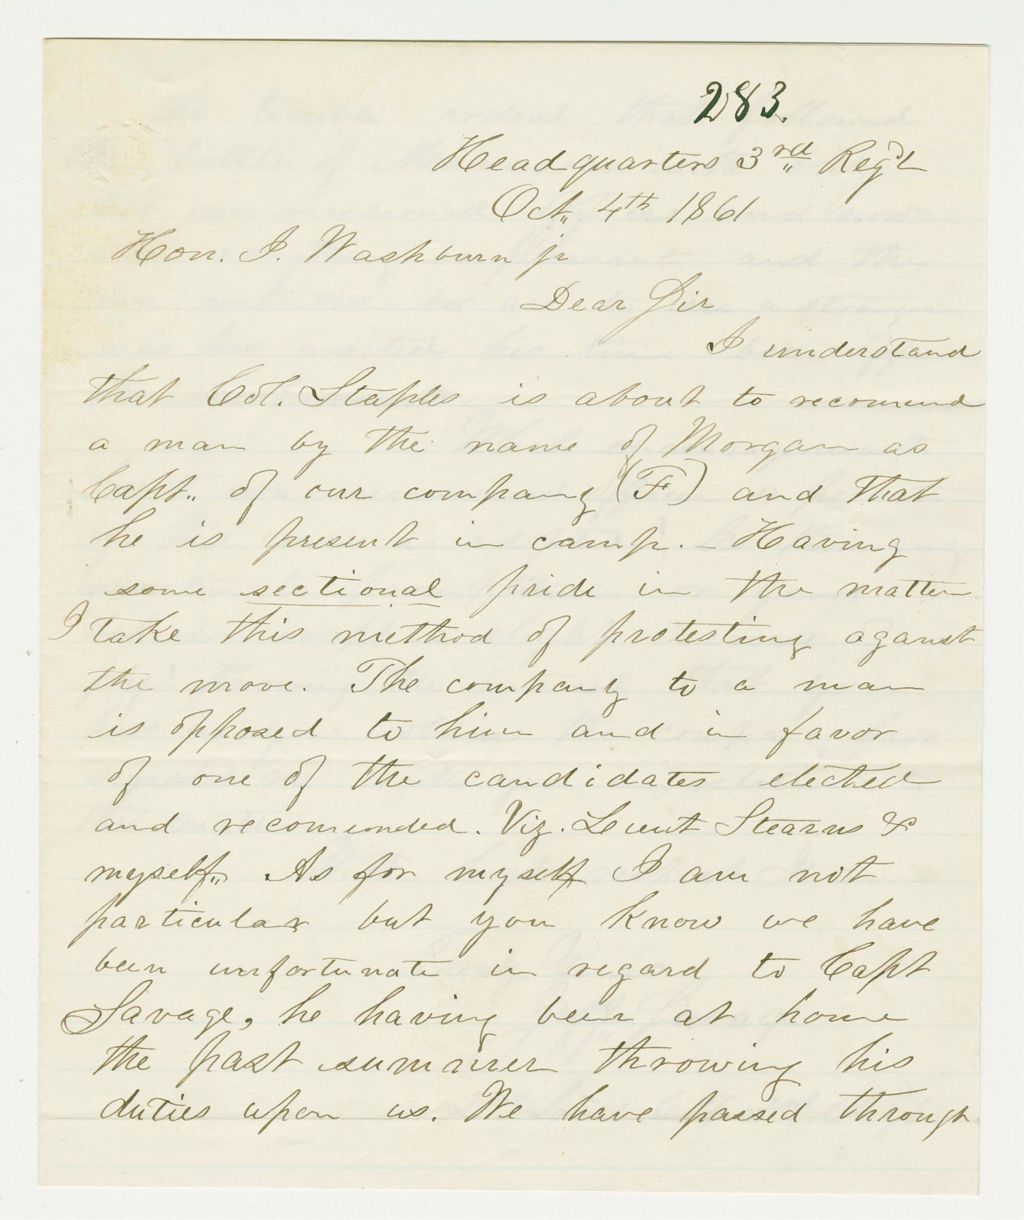 283.
Headquarters 3rd Reg't
Oct. 4th 1861
Hon. I. Washburn jr
Dear Sir
I understand
that Col. Staples is about to recomend
a man by the name of Morgan as
Capt. of our company (F) and that
he is present in camp. - Having
some sectional pride in the matter
I take this method of protesting against
the move. The company to a man
is opposed to him and in favor
of one of the candidates elected
and recomended. Viz. Lieut Stearns &
myself. As for myself I am not
particular but you know we have
been unfortunate in regard to Capt
Savage, he having been at home
the past summer throwing his
duties upon us. We have passed through